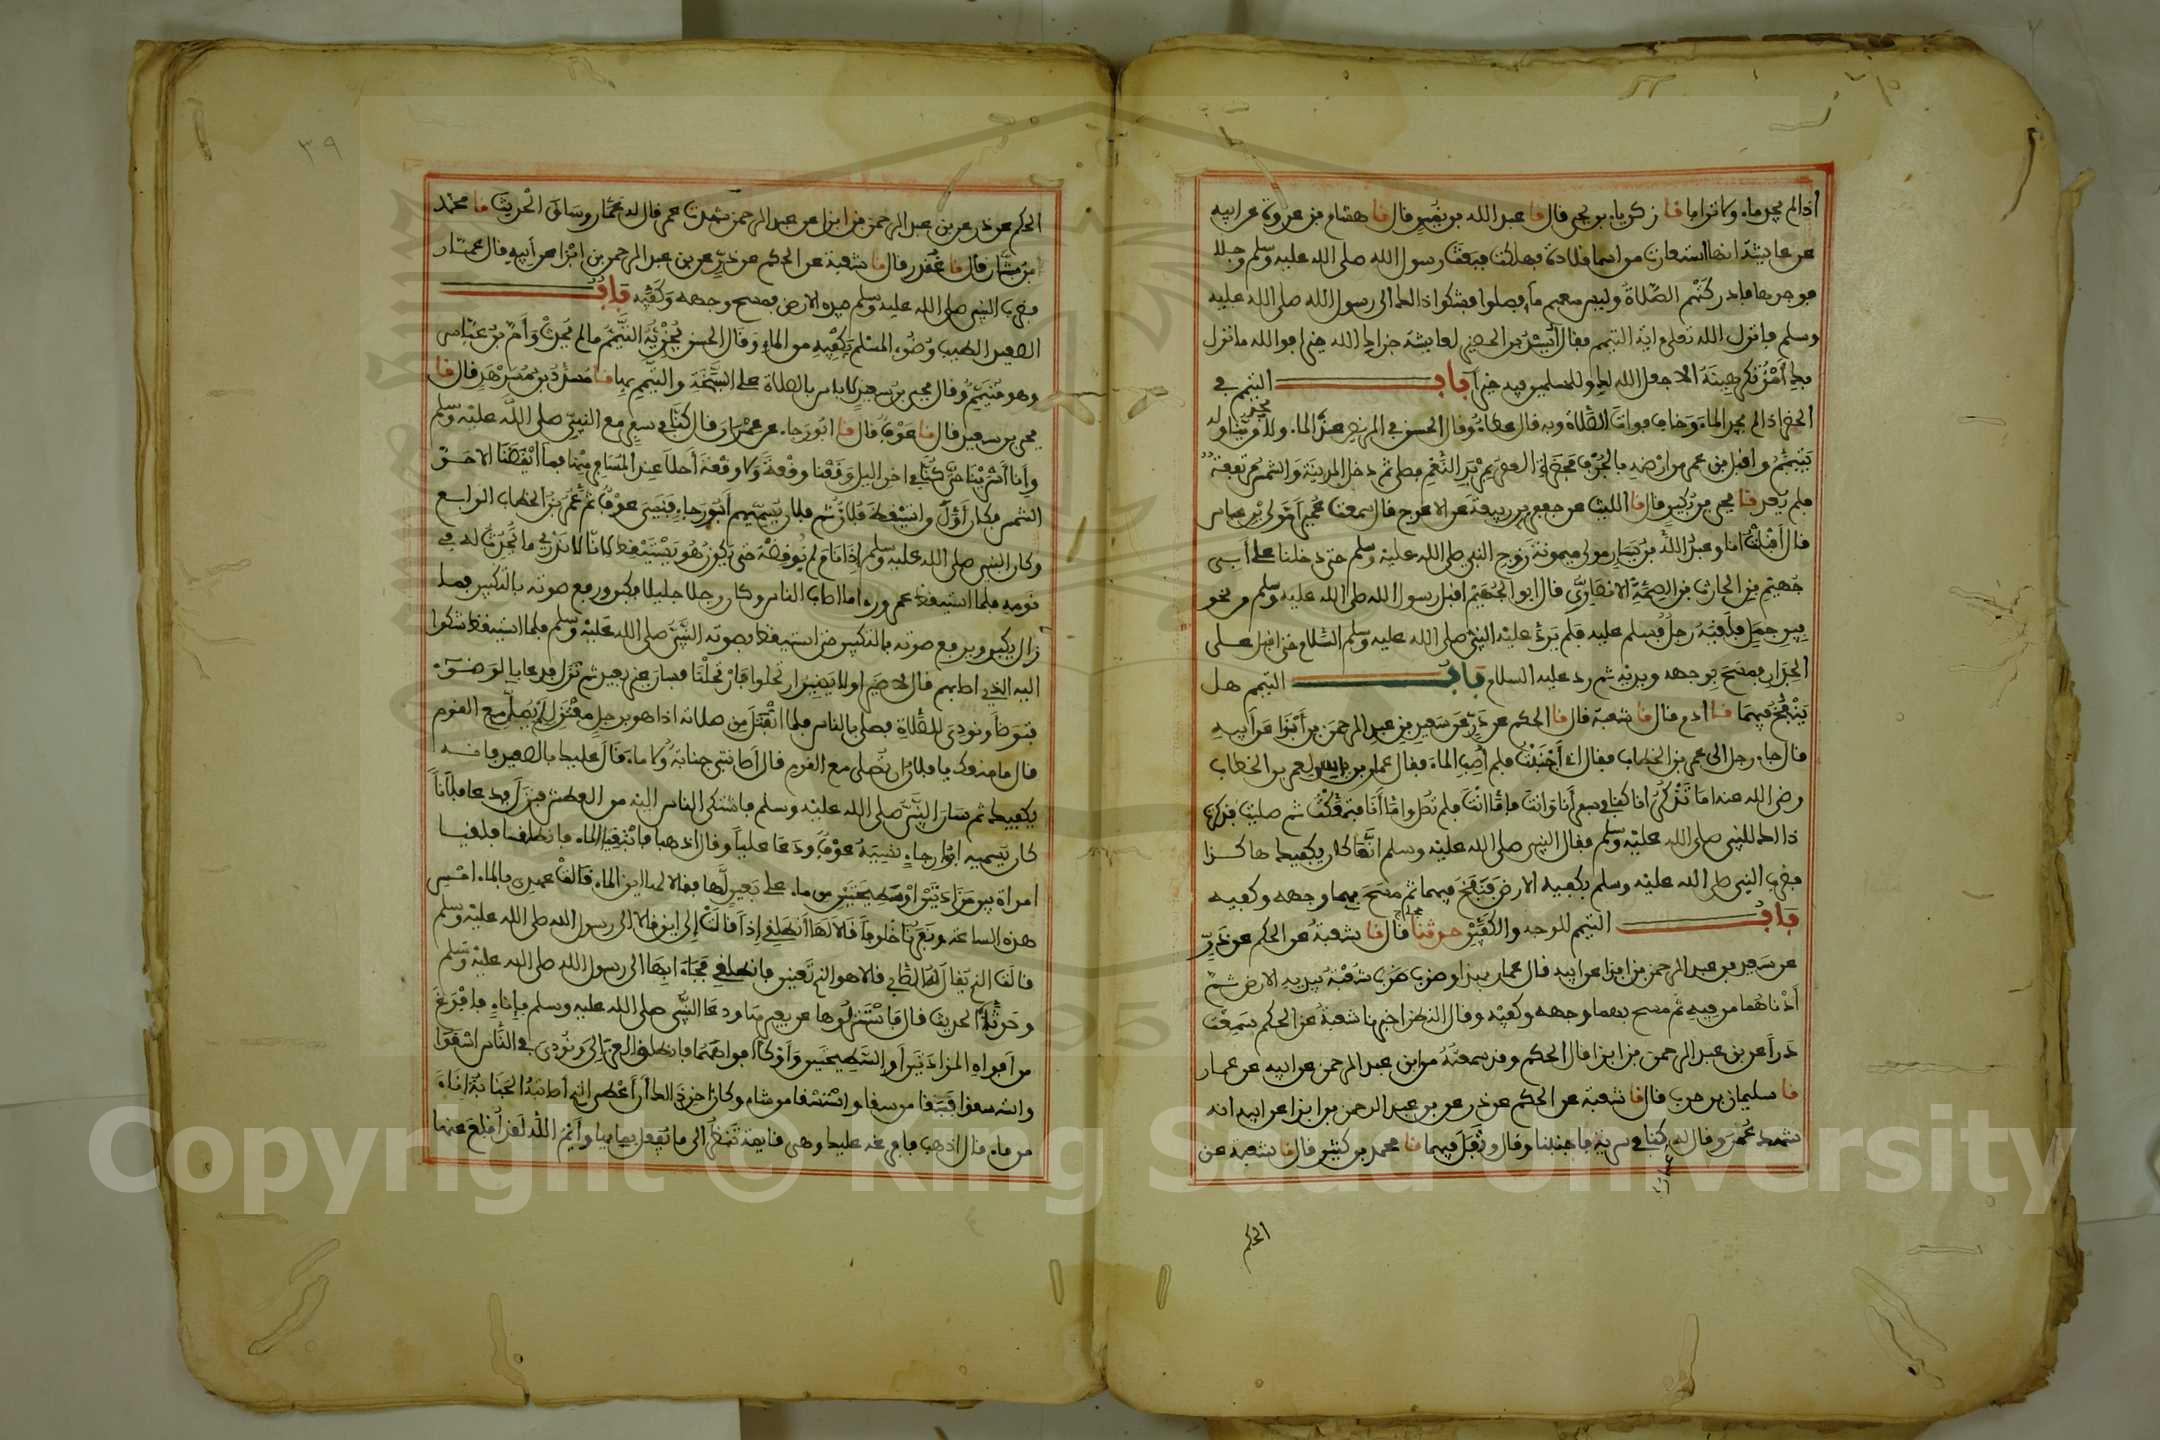 اذا لم يجد ماء ولا ترابا نا زكرياء بن يحيى قال نا عبد الله بن نمير قال نا هشام بن عروة عن ابيه
عن عائشة انها استعارت من اسما قلادة فهلكت فبعث رسول الله صلى الله عليه وسلم رجلا
فوجدها فادركتهم الصلاة وليس معهم ماء فصلوا فشكوا ذالك الى رسول الله صلى الله عليه
وسلم فانزل الله تعلى اية التيمم فقال اسيد بن الحضير لعايشة جزاك الله خيرا فوالله ما نزل
بك امر تكرهينه الا جعل الله لك وللمسلمين فيه خيرا باب التيمم في
الحضر اذا لم يجد الماء وخاف فوات الصلاة وبه قال عطاء وقال الحسن في المريض عند الماء ولا يجد من يناوله
يتيمم واقبل ابن عمر من ارضه بالجرف فحضرت العصر بمربد النعم فصلى ثم دخل المدينة والشمس مرتفعة
فلم يعد نا يحيى بن بكير قال نا الليث عن جعفر بن ربيعة عن الاعرج قال سمعت عميرا مولى بن عباس
قال اقبلت انا وعبد الله بن يسار مولى ميمونة زوج النبي صلى الله عليه وسلم حتى دخلنا على أبي
جهيم بن الحارث بن الصمة الانصاري قال ابو الجهيم اقبل رسول الله صلى الله عليه وسلم من نحو
بير جمل فلقيه رجل فسلم عليه فلم يرد عليه النبي صلى الله عليه وسلم السلام حتى اقبل على
الجدار فمسح بوجهه ويديه ثم رد عليه السلام باب التيمم هل
ينفخ فيهما نا ادم قال نا شعبة قال نا الحكم عن ذر عن سعيد بن عبد الرحمن بن أبزا عن أبيه
قال جاء رجل الى عمر بن الخطاب فقال اني أجنبت فلم أصب الماء فقال عمار بن ياسر لعمر بن الخطاب
رضي الله عنه اما تذكر انا كنا في سفر أنا وانت فاما انت فلم تصل واما أنا فتمعكت ثم صليت فذكرت
ذالك للنبي صلى الله عليه وسلم فقال النبي صلى الله عليه وسلم انما كان يكفيك هاكذا
فضرب النبي صلى الله عليه وسلم بكفيه الارض فنفخ فيهما ثم مسح بهما وجهه وكفيه
باب التيمم للوجه والكفين حدثنا حجاج قال نا شعبة عن الحكم عن ذر
عن سعيد بن عبد الرحمن بن ابزا عن ابيه قال عمار بهذا وضرب شعبة بيديه الارض ثم
أدناهما من فيه ثم مسح بهما وجهه وكفيه وقال النضر اخبرنا شعبة عن الحكم سمعت
ذرا عن بن عبد الرحمن بن ابزا قال الحكم وقد سمعته من ابن عبد الرحمن عن ابيه عن عمار
نا سليمان بن حرب قال نا شعبة عن الحكم عن ذر عن بن عبد الرحمن بن ابزا عن ابيه انه
شهد عمر وقال له عمار كنا في سرية فاجنبنا وقال وتفل فيهما نا محمد بن كثير قال نا شعبة عن
الحكم
٣٩
الحكم عن ذر عن بن عبد الرحمن بن ابزا عن عبد الرحمن شهدت عمر قال له عمار وساق الحديث نا محمد
بن بشار قال نا غندر قال نا شعبة عن الحكم عن ذر عن بن عبد الرحمن بن ابزا عن أبيه قال عمار
فضرب النبي صلى الله عليه وسلم بيده الارض فمسح وجهه وكفيه باب
الصعيد الطيب وضوء المسلم يكفيه من الماء وقال الحسن يجزئه التيمم ما لم يحدث وأم بن عباس
وهو متيمم وقال يحيى بن سعيد لا باس بالصلاة على السبخة والتيمم بها نا مسدد بن مسرهد قال نا
يحيى بن سعيد قال نا عوف قال نا ابو رجاء عن عمران قال كنا في سفر مع النبي صلى الله عليه وسلم
وإنا أسرينا حتى كنا في اخر اليل وقعنا وقعة ولا وقعة أحلى عند المسافر منها فما أيقظنا الا حر
الشمس فكان أول من استيقظ فلان ثم فلان يسميهم أبو رجاء فنسي عوف ثم عمر بن الخطاب الرابع
وكان النبي صلى الله عليه وسلم إذا نام لم نوقظه حتى يكون هو يستيقظ لانا لا ندري ما يحدث له في
نومه فلما استيقظ عمر وراى ما اصاب الناس وكان رجلا جليدا فكبر ورفع صوته بالتكبير فما
زال يكبر ويرفع صوته بالتكبير حتى استيقظ بصوته النبي صلى الله عليه وسلم فلما استيقظ شكوا
اليه الذي اصابهم قال لا ضير او لا يضير ارتحلوا فارتحلنا فسار غير بعيد ثم نزل فدعا بالوضوء
فتوضأ ونودي للصلاة فصلى بالناس فلما انفتل من صلاته اذا هو برجل معتزل لم يصل مع القوم
قال ما منعك يا فلان ان تصلي مع القوم قال أصابتني جنابة ولا ماء قال عليك بالصعيد فانه
يكفيك ثم سار النبي صلى الله عليه وسلم فاشتكى الناس اليه من العطش فنزل فدعا فلانا
كان يسميه ابو رجاء نسيه عوف ودعا عليا وقال اذهبا فابتغيا الماء فانطلقا فلقيا
امراة بين مزادتين او سطيحتين من ماء على بعير لها فقالا لها اين الماء قالت عهدي بالماء امس
هذه الساعة ونفرنا خلوفا قالا لها انطلقي إذا قالت إلى اين قالا الى رسول الله صلى الله عليه وسلم
قالت الذي يقال له الصابي قالا هو الذي تعنين فانطلقي فجاءا بها الى رسول الله صلى الله عليه وسلم
وحدثاه الحديث قال فاستنزلوها عن بعيرها ودعا النبي صلى الله عليه وسلم بإناء فافرغ
من أفواه المزادتين أو السطيحتين وأوكأ أفواههما واطلق العزالي ونودي في الناس اسقوا
واستقوا فسقى من سقا واستسقا من شاء وكان اخر ذالك أن أعطى الذي أصابته الجنابة اناء
من ماء قال اذهب فافرغه عليك وهي قايمة تنظر الى ما يفعل بمايها وأيم الله لقد أقلع عنها
Copyright © King Saud University